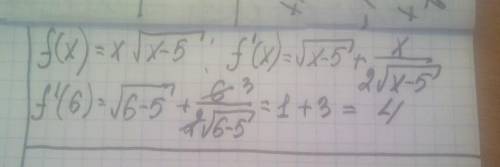 f(x) = x√(x-5); f'(x) = √(x-5) + x/(2√(x-5))
f'(6) = √(6-5) + 6³/(2√(6-5)) = 1 + 3 = 4